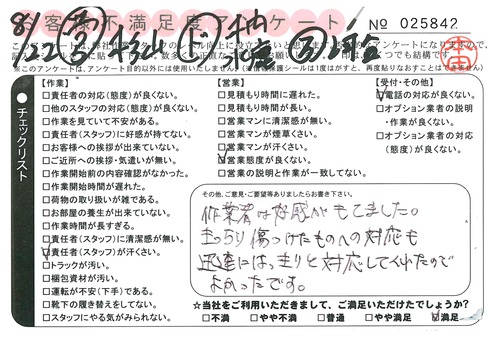 お客様不満足度アンケート
No 025842
8/22
【作業】
□責任者の対応(態度)が良くない。
□他のスタッフの対応(態度)が良くない。
□作業を見ていて不安がある。
□責任者(スタッフ)に好感が持てない。
□お客様への挨拶が出来ていない。
□ご近所への挨拶・気遣いが無い。
□作業開始前の内容確認がなかった。
□作業開始時間が遅れた。
□荷物の取り扱いが雑である。
□お部屋の養生が出来ていない。
□作業時間が長すぎる。
□責任者(スタッフ)に清潔感が無い。
□責任者(スタッフ)が汗くさい。
□トラックが汚い。
□梱包資材が汚い。
□運転が不安(下手)である。
□靴下の履き替えをしてない。
□スタッフにやる気がみられない。
チェックリスト
【営業】
□見積もり時間に遅れた。
□見積もり時間が長い。
□営業マンに清潔感が無い。
□営業マンが煙草くさい。
□営業マンが汗くさい。
□営業態度が良くない。
□営業の説明と作業が一致してない。
【受付・その他】
□電話の対応が良くない。
□オプション業者の説明
・作業が良くない。
□オプション業者の対応
(態度)が良くない。
その他、ご意見・ご要望等ありましたらお書き下さい。
作業者は好感がもてました。
うっかり傷つけたものへの対応も
迅速にはっきりと対応してくれたので
よかったです。
☆当社をご利用いただきまして、ご満足いただけたでしょうか?
□不満 □やや不満 □普通 □やや満足 ☑満足